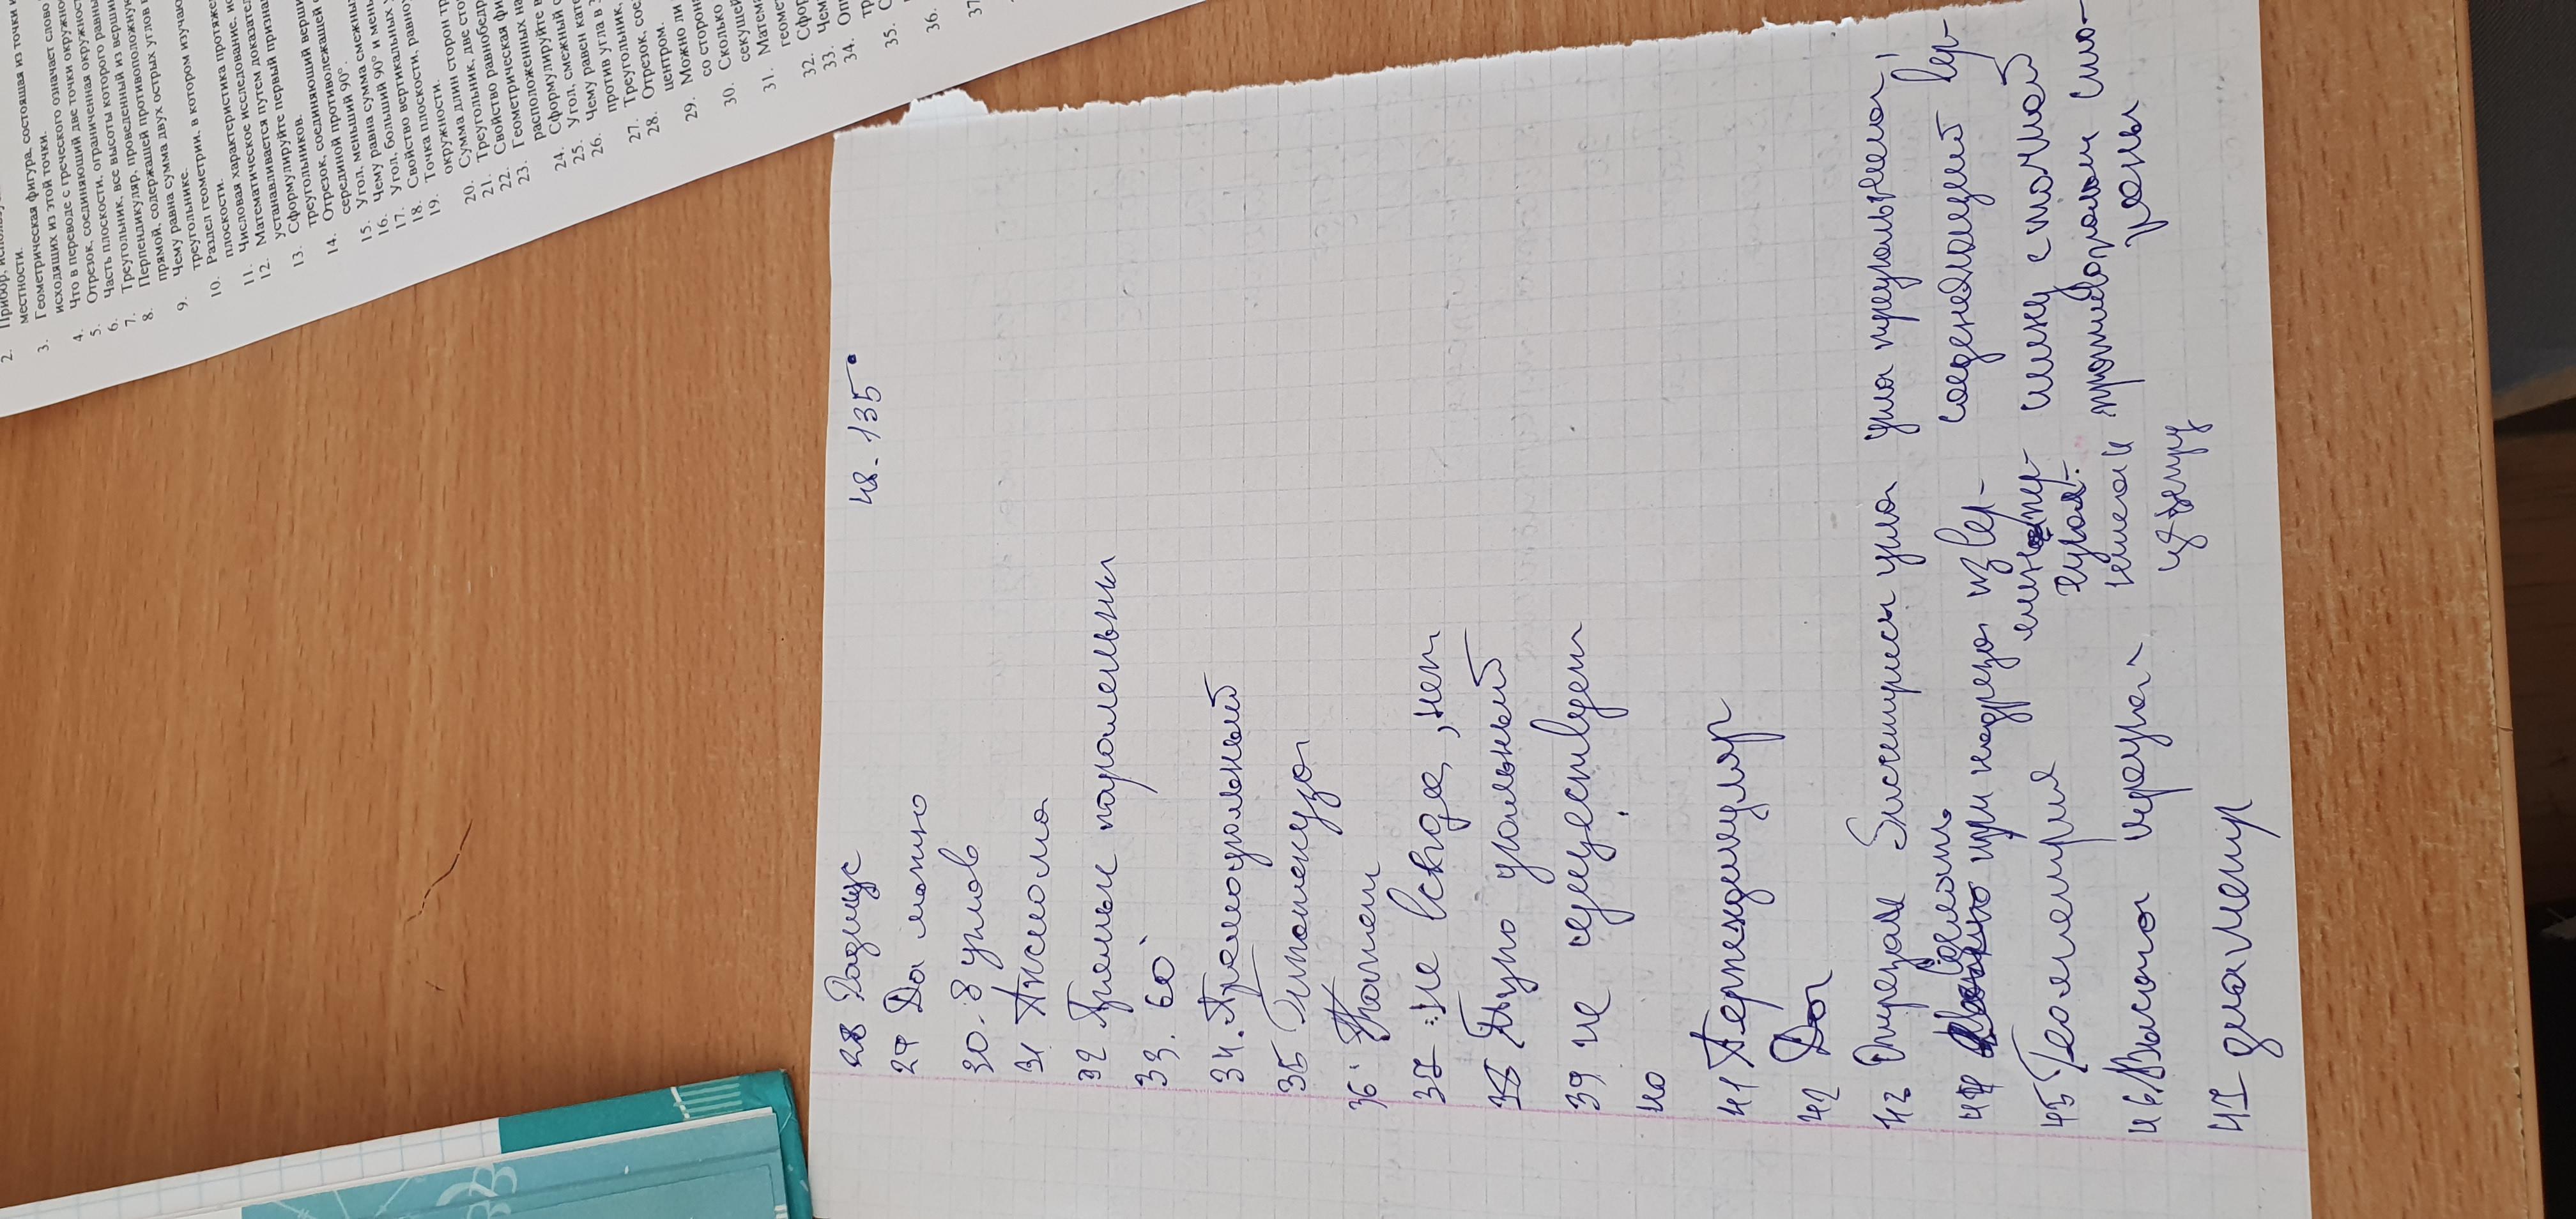 2. Прибор, используе
местности.
3. Геометрическая фигура, состоящая из точки и
исходящих из этой точки.
4. Что в переводе с греческого означает слово
5. Отрезок, соединяющий две точки окружнос
6. Часть плоскости, ограниченная окружност
7. Треугольник, все высоты которого равны
8. Перпендикуляр, проведенный из верши
прямой, содержащей противоположную
9. Чему равна сумма двух острых углов
треугольнике.
10. Раздел геометрии, в котором изучаю
плоскости.
11. Числовая характеристика протяже
12. Математическое исследование, ис
устанавливается путем доказател
13. Сформулируйте первый призна
треугольников.
14. Отрезок, соединяющий верши
серединой противолежащей с
15. Угол, меньший 90°.
16. Чему равна сумма смежны
17. Угол, больший 90° и мень
18. Свойство вертикальных у
19. Точка плоскости, равноу
окружности.
20. Сумма длин сторон тр
21. Треугольник, две сто
22. Свойство равнобедр
23. Геометрическая фи
расположенных на
24. Сформулируйте в
25. Угол, смежный с
26. Чему равен кате
против угла в 3
27. Треугольник,
28. Отрезок, сое
центром.
29. Можно ли
со сторон
30. Сколько
секущей
31. Матем
геомет
32. Сфор
33. Чем
34. Оп
тр
35. С
36.
37
28 Радиус
29 Да можно
30. 8 углов
31 Аксиома
32 Прямые паралельны
33. 60°
34. Премоугольный
35 Гипотенуза
36. Катет
37 не всегда, нет
38 Тупоугольный
39 не существует
40
41 Перпендикуляр
42 Да
43 Отрезак биссектрисы угла угла треугольнека,
соеденяющий вер-
шину с точкой
противополож сто-
роны
44 делать при надреза из вер-
45 Геометрия
46. Высота
47 диаметр
48. 135°